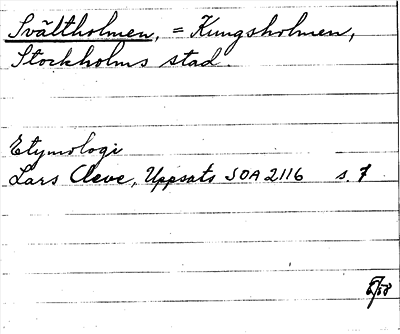 Svältholmen, = Kungsholmen,
Stockholms stad.
Etymologi
Lars Cleve, Uppsats SOA 2116 s. 7